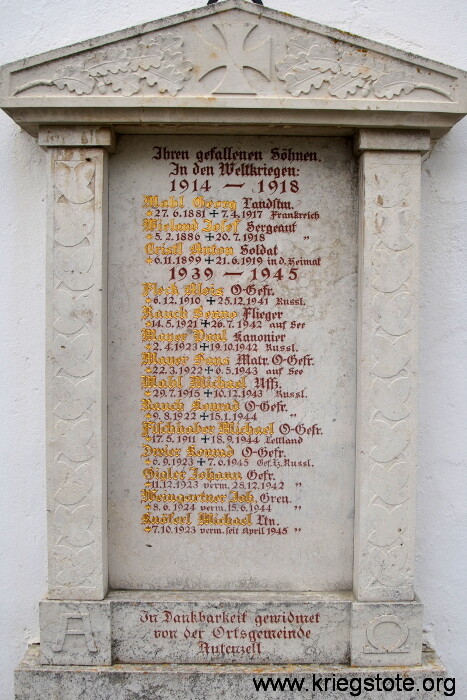 Ihren gefallenen Söhnen.
In den Weltkriegen:
1914 — 1918
Mahl Georg Landstm.
27.6.1881 + 7.4.1917 Frankreich
Wieland Josef Sergeant
5.2.1886 + 20.7.1918 "
Cristl Anton Soldat
6.11.1899 + 21.6.1919 in d. Heimat
1939 — 1945
Fleck Alois O-Gefr.
6.12.1910 + 25.12.1941 Russl.
Rauch Benno Flieger
14.5.1921 + 26.7.1942 auf See
Mayer Paul Kanonier
2.4.1923 + 19.10.1942 Russl.
Mayer Hans Matr. O-Gefr.
22.3.1922 + 6.5.1943 auf See
Mahl Michael Uffz.
29.7.1915 + 10.12.1943 Russl.
Rauch Konrad O-Gefr.
9.8.1922 + 15.1.1944 "
Michael O-Gefr.
17.5.1911 + 18.9.1944 Lettland
Dreier Konrad O-Gefr.
6.9.1923 + 7.6.1945 Gef. Lz. Russl.
Johann Gefr.
11.12.1923 verm. 28.12.1942 "
Weingartner Joh. Gren.
8.6.1924 verm. 15.6.1944 "
Knöferl Michael Ltn.
7.10.1923 verm. seit April 1945 "
In Dankbarkeit gewidmet
A von der Ortsgemeinde Ω
Rutenzell
www.kriegstote.org